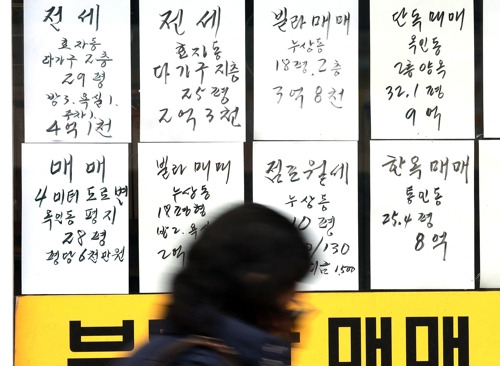 전세
효자동
다가구 2층
29평
방3. 욕실1.
주차1.
4억1천
전세
효자동
다가구 지층
25평
2억3천
빌라매매
누상동
18평.2층
3억8천
단독매매
옥인동
2층양옥
32.1평
9억
매매
4미터 도로변
옥인동 평지
28평
평당6천만원
빌라매매
누상동
방2.
2억
점포월세
누상동
10평
/130
1500
한옥매매
통인동
25.4평
8억
매매